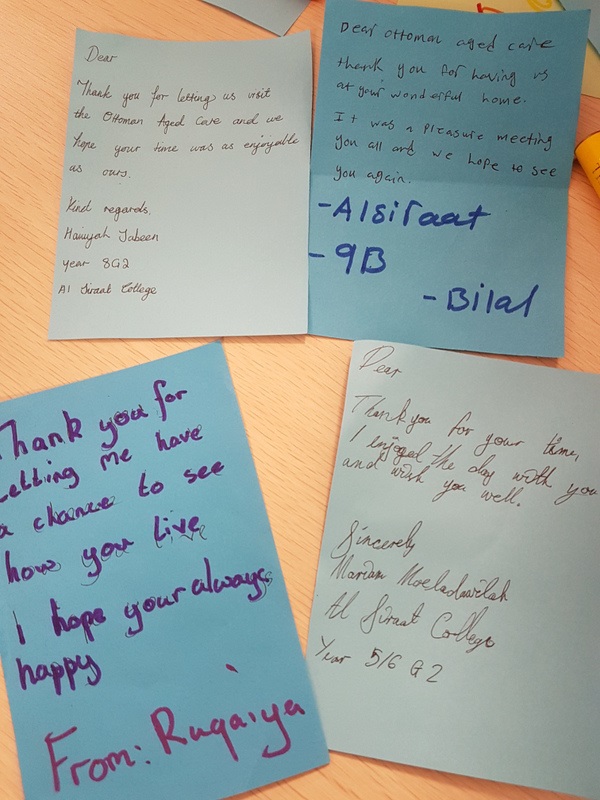 Dear
Thank you for letting us visit
the Ottoman Aged Care and we
hope your time was as enjoyable
as ours.
Kind regards,
Haniyah Jabeen
year 8G2
Al Siraat College
Dear Ottoman aged care
thank you for having us
at your wonderful home.
It was a pleasure meeting
you all and we hope to see
you again.
-Alsiraat
-9B
-Bilal
Thank you for
Letting me have
a chance to see
how you live
I hope your always
happy
From: Ruqaiya
Dear
Thank you for your time,
I enjoyed the day with you
and wish you well.
Sincerely
Mariam
Al Siraat College
Year 5/6 G2